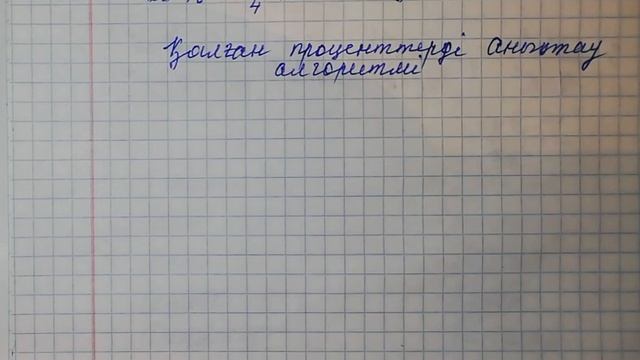 4
Қалған проценттерді анықтау
алгоритмі